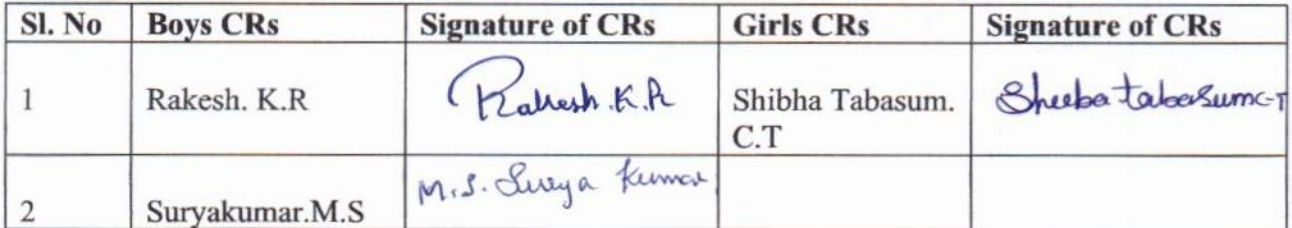 Sl. No Boys CRs Signature of CRs Girls CRs Signature of CRs
1 Rakesh. K.R Rakesh.K.R Shibha Tabasum. Sheeba tabasum C-T
C.T
2 Suryakumar.M.S M.S. Surya Kumar